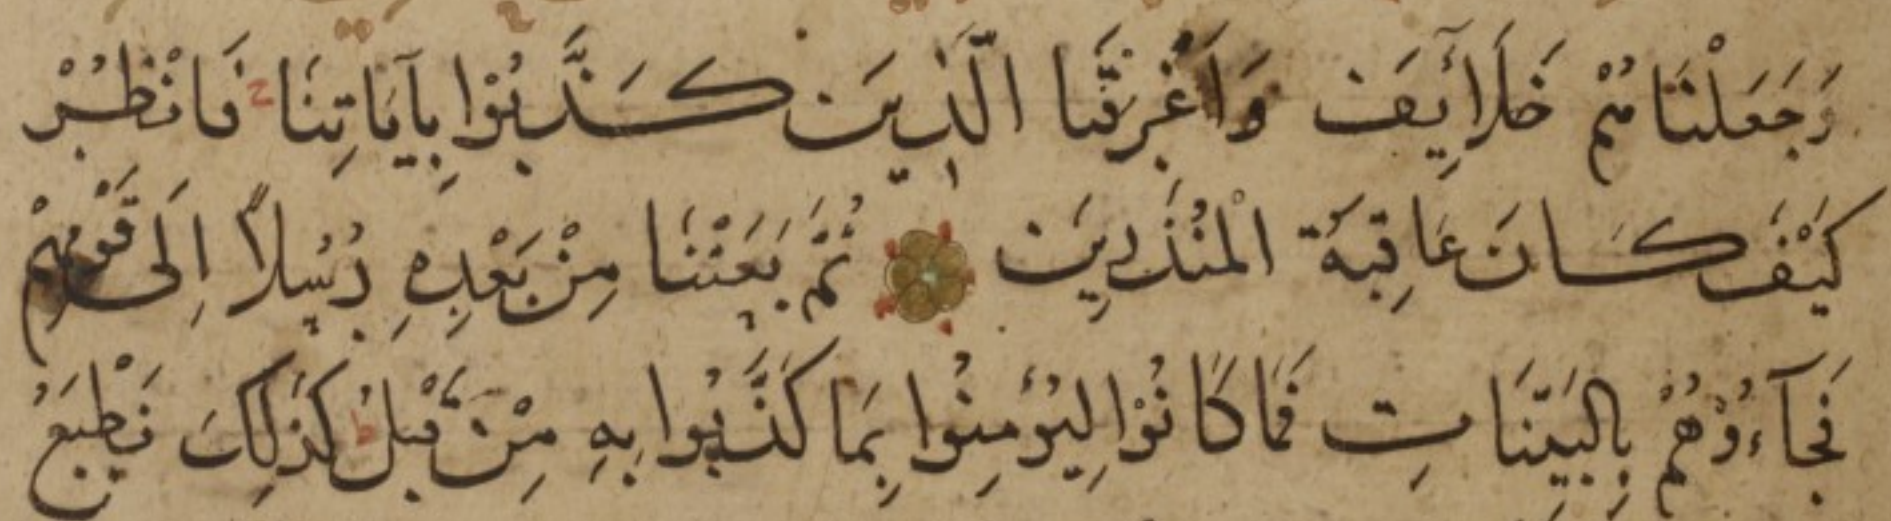 وَجَعَلْنَاهُمْ خَلَآئِفَ وَاَغْرَقْنَا الَّذِينَ كَذَّبُوْا بِآيَاتِنَا ح فَانْظُرْ
كَيْفَ كَانَ عَاقِبَةُ الْمُنْذَرِينَ ثُمَّ بَعَثْنَا مِنْ بَعْدِهِ رُسُلاً اِلَى قَوْمِهِمْ
فَجَآءُوْهُمْ بِالْبَيِّنَاتِ فَمَا كَانُوْا لِيُؤْمِنُوا بِمَا كَذَّبُوا بِهِ مِنْ قَبْلُ ط كَذَلِكَ نَطْبَعُ